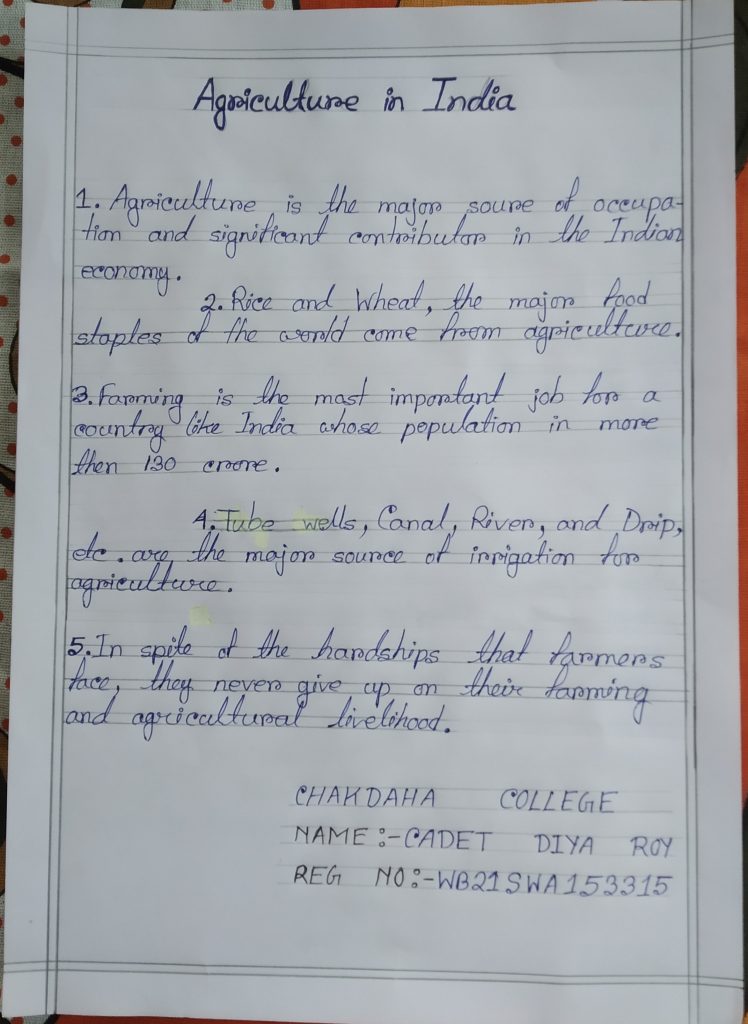 Agriculture in India
1. Agriculture is the major soure of occupa-
tion and significant contributor in the Indian
economy.
2. Rice and Wheat, the major food
staples of the world come from agriculture.
3. Farming is the most important job for a
country like India whose population in more
then 130 crore.
4. Tube wells, Canal, River, and Drip,
etc. are the major source of irrigation for
agriculture.
5. In spite of the hardships that farmers
face, they never give up on their farming
and agricultural livelihood.
CHAKDAHA COLLEGE
NAME :- CADET DIYA ROY
REG NO :- WB21SWA153315